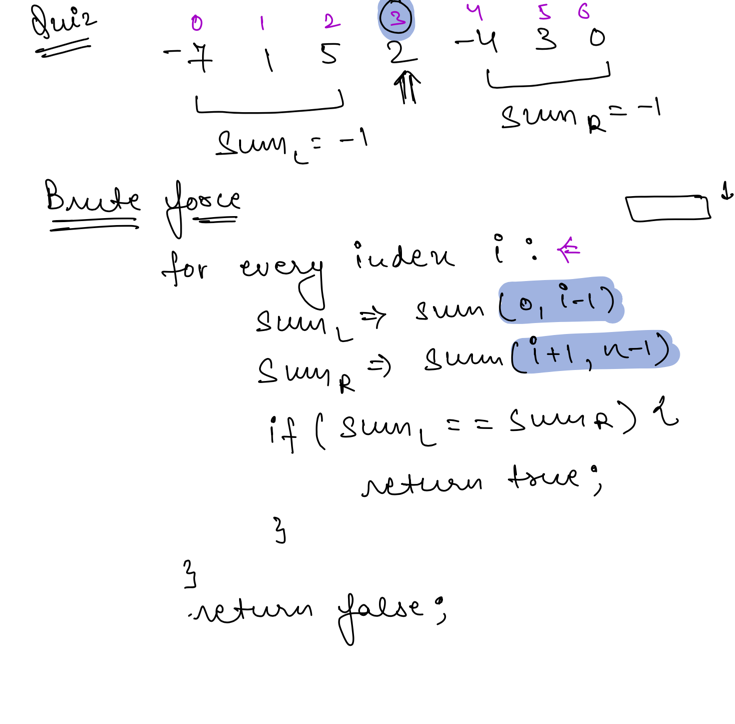 Quiz
0 1 2 3 4 5 6
-7 1 5 2 -4 3 0
Sum L = -1
Sum R = -1
Brute force
for every index i :
Sum L => Sum (0, i-1)
Sum R => Sum (i+1, n-1)
if ( Sum L == Sum R ) {
return true;
}
}
return false;